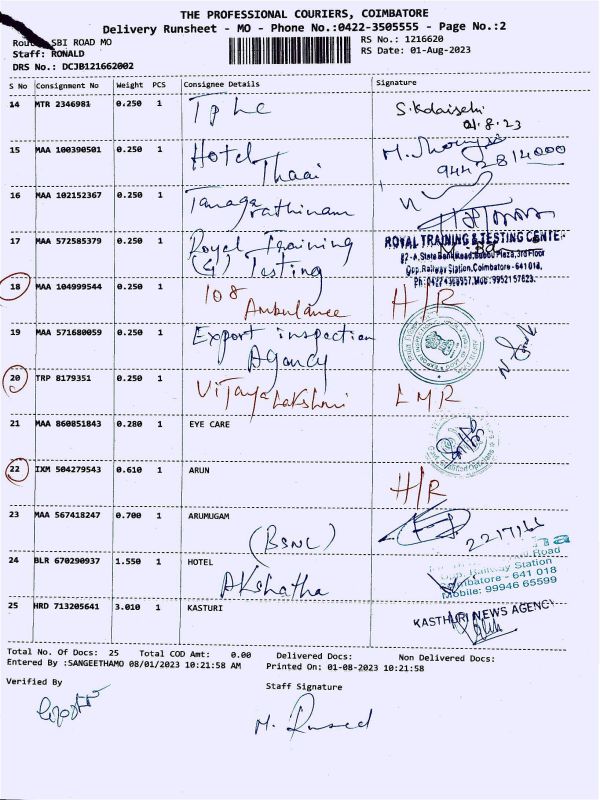 THE PROFESSIONAL COURIERS, COIMBATORE
Delivery Runsheet - MO - Phone No.:0422-3505555 - Page No.:2
Route: SBI ROAD MO
RS No.: 1216620
Staff: RONALD
RS Date: 01-Aug-2023
DRS No.: DCJB121662002
S No Consignment No Weight PCS Consignee Details Signature
14 MTR 2346981 0.250 1
01.8.23
15 MAA 100390501 0.250 1 Hotel
Thaai
16 MAA 102152367 0.250 1 Tamaga
rathinam
17 MAA 572585379 0.250 1 Royal Training
(&) Testing
ROYAL TRAINING & TESTING CENTE
Opp. Railway Station, Coimbatore - 641 018,
18 MAA 104999544 0.250 1 108
Ambulance H/R
19 MAA 571680059 0.250 1 Export inspection
Agancy
20 TRP 8179351 0.250 1 Vijaya Lakshmi LMR
21 MAA 860851843 0.280 1 EYE CARE
22 IXM 504279543 0.610 1 ARUN
H/R
23 MAA 567418247 0.700 1 ARUMUGAM
(BSNL)
24 BLR 670290937 1.550 1 HOTEL
Akshatha
Road
Opp. Railway Station
Coimbatore - 641 018
Mobile: 99946 65599
25 HRD 713205641 3.010 1 KASTURI
KASTHURI NEWS AGENCY
Total No. Of Docs: 25 Total COD Amt: 0.00 Delivered Docs: Non Delivered Docs:
Entered By :SANGEETHAMO 08/01/2023 10:21:58 AM Printed On: 01-08-2023 10:21:58
Verified By Staff Signature